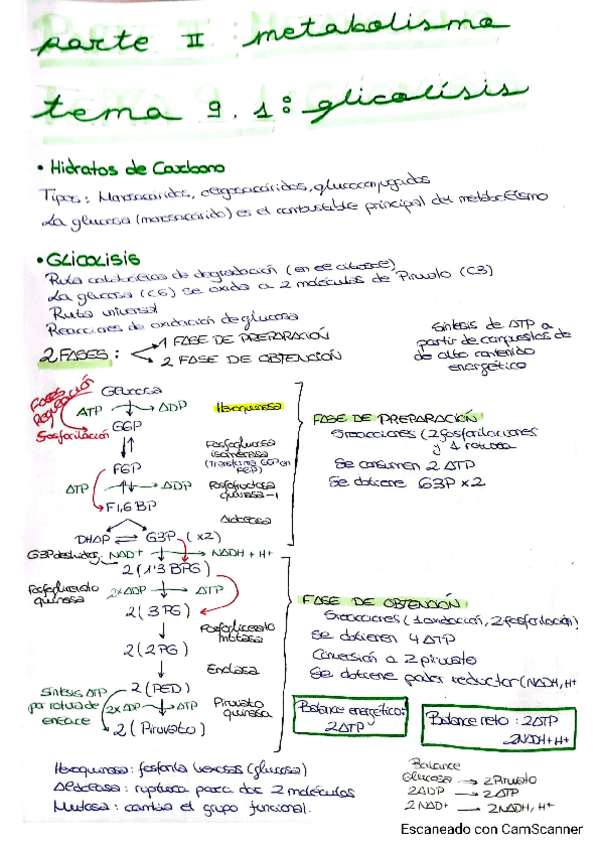 parte II metabolismo
tema 9.1: glicolísis
• Hidratos de Carbono
Tipos: Monosacáridos, oligosacáridos, glucoconjugados
La glucosa (monosacárido) es el combustible principal del metabolismo
• GLICOLISIS
Ruta catabólica de degradación (en el citosol)
La glucosa (C6) se oxida a 2 moléculas de Piruvato (C3)
Ruta universal
Reacciones de oxidación de glucosa
2 FASES: 1 FASE DE PREPARACIÓN
2 FASE DE OBTENCIÓN
Síntesis de ATP a
partir de compuestos de
de alto contenido
energético
FASES
REGULACIÓN
Fosforilación
Glucosa
ATP → ADP
Hexoquinasa
G6P
Fosfoglucosa
isomerasa
(Transforma G6P en
F6P)
F6P
ATP → ADP
Fosfofructosa
quinasa-1
F1,6BP
Aldolasa
DHAP ⇌ G3P (x2)
FASE DE PREPARACIÓN
5 reacciones (2 fosforilaciones
y 1 rotura
Se consumen 2 ATP
Se obtiene G3P x2
G3P deshidrog. NAD+ → NADH + H+
2(1'3 BPG)
Fosfoglicerato
quinasa
2xADP → ATP
2(3PG)
Fosfoglicerato
mutasa
2(2PG)
Enolasa
2(PED)
Síntesis ATP
por rotura de
enlace
2xADP → ATP
Piruvato
quinasa
2(Piruvato)
FASE DE OBTENCIÓN
5 reacciones (1 oxidación, 2 fosforilación)
Se obtienen 4 ATP
Conversión a 2 piruvato
Se obtiene poder reductor (NADH, H+
Balance energético:
2ATP
Balance neto: 2ATP
2NADH+H+
Hexoquinasa: fosforila hexosas (glucosa)
Aldolasa: ruptura para dar 2 moléculas
Mutasa: cambia el grupo funcional.
Balance
Glucosa → 2 Piruvato
2ADP → 2ATP
2NAD+ → 2NADH, H+
Escaneado con CamScanner